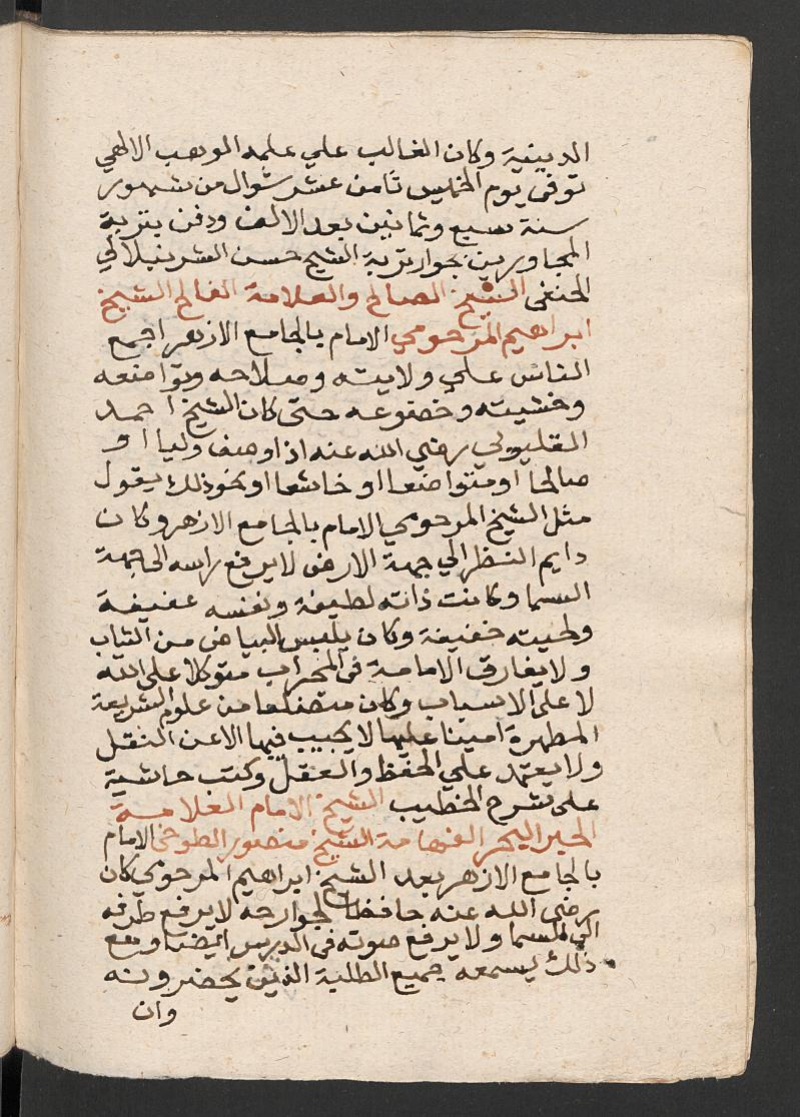 الدينية وكان الغالب علي علمه الموهب الالهي
توفى يوم الخميس ثامن عشر شوال من شهور
سنة سبع وثمانين بعد الالف ودفن بتربة
المجاورين بجوار تربة الشيخ حسن الشرنبلالي
الحنفى الشيخ الصالح والعلامة الفالح الشيخ
ابراهيم المرحومي الامام بالجامع الازهر اجمع
الناس علي ولايته وصلاحه وتواضعه
وخشيته وخضوعه حتى كان الشيخ احمد
القليوبي رضي الله عنه اذا وصف وليا او
صالحا او متواضعا او خاشعا او نحو ذلك يقول
مثل الشيخ المرحومي الامام بالجامع الازهر وكان
دايم النظر الي جهة الارض لا يرفع راسه الى جهة
السما وكانت ذاته لطيفة ونفسه عفيفة
ولحيته خفيفة وكان يلبس البياض من الثياب
ولا يفارق الامامة فى المحراب متوكلا على الله
لا على الاسباب وكان متضلعا من علوم الشريعة
المطهرة امينا عليها لا يجيب فيها الا عن النقل
ولا يعتمد علي الحفظ والعقل وكتب حاشية
على شرح الخطيب الشيخ الامام العلامة
الحبر البحر الفهامة الشيخ منصور الطوخى الامام
بالجامع الازهر بعد الشيخ ابراهيم المرحومي كان
رضى الله عنه حافظا لجوارحه لا يرفع طرفه
الي السما ولا يرفع صوته فى الدرس ايضا ومع
ذلك يسمعه جميع الطلبة الذين يحضرونه
وان